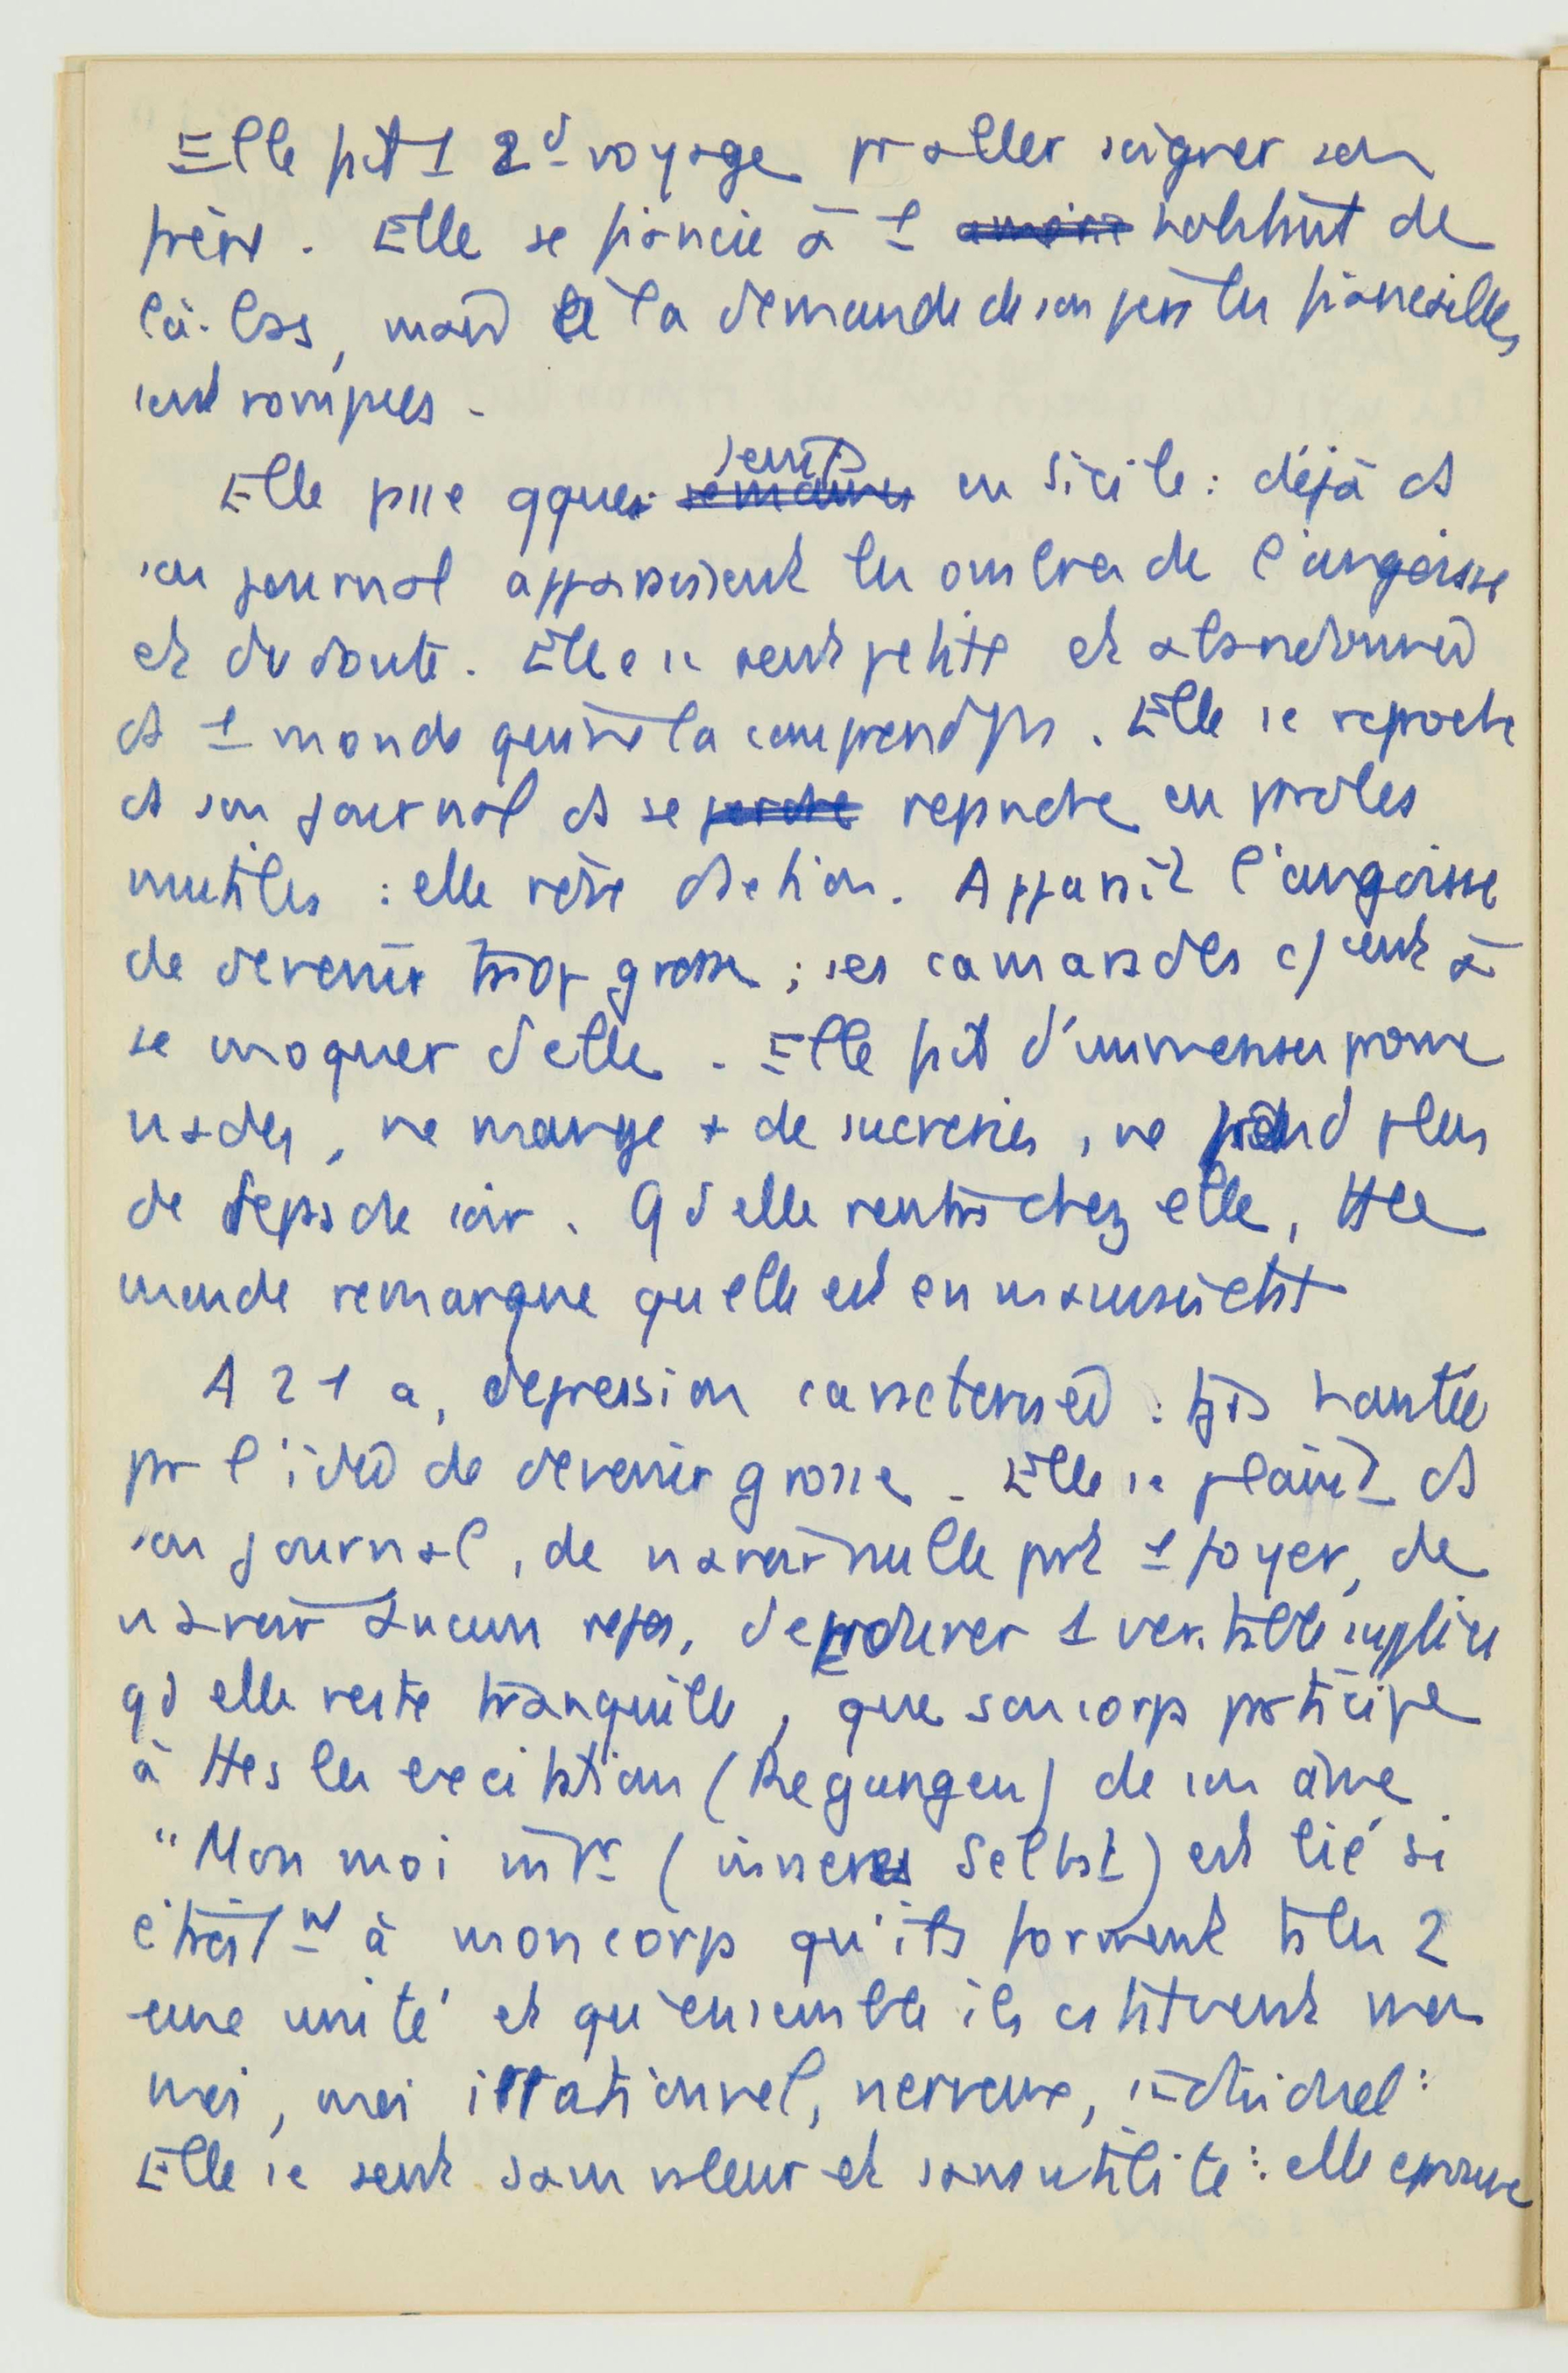 Elle fait 1 2d voyage pr aller soigner son
frère. Elle se fiancie à 1 habitant de
là-bas, mais à la demande de son père les fiançailles
sont rompues.
Elle passe qques semaines en Sicile : déjà ds
son journal apparaissent les ombres de l'angoisse
et du doute. Elle se sent petite et abandonnée
ds 1 monde qui ne la comprend pas. Elle se reproche
ds son journal de se reproche en paroles
inutiles : elle rêve d'action. Apparaît l'angoisse
de devenir trop grosse ; ses camarades c/cent à
se moquer d'elle. Elle fait d'immenses prome
nades, ne mange + de sucreries, ne prend plus
de repas de soir. Qd elle rentre chez elle, tt le
monde remarque qu'elle est en mauvais état
A 21 a, depression caracterisée : tjrs hantée
pr l'idée de devenir grosse. Elle se plaint ds
son journal, de n'avoir nulle part 1 foyer, de
n'avoir aucun repos, d'eprouver 1 veritable supplice
qd elle reste tranquille, que son corps participe
à ttes les excitations (Regungen) de son âme
"Mon moi intr (inneres Selbst) est lié si
étroitmt à mon corps qu'ils forment ts les 2
une unité et qu'ensemble ils cstituent mon
moi, moi irrationnel, nerveux, individuel :
Elle se sent sans valeur et sans utilite : elle eprouve